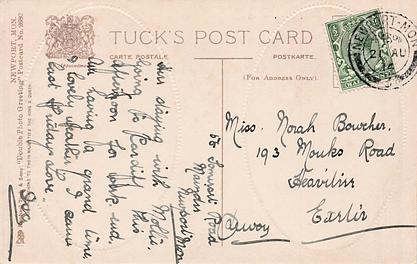 TUCK'S POST CARD
CARTE POSTALE.
POSTKARTE.
(FOR ADDRESS ONLY.)
NEWPORT, MON.
"Double Photo Greeting" Postcard No.
NEWPORT-MON
21 AU
Am staying with Mollie,
going to Cardiff this
afternoon for week end
Am having a grand time
& lovely weather. I came
last Friday. Love
58 Somerset Road
Maindee
Newport Mon
Miss. Norah Bowcher.
193 Monks Road
Heavitree
Exeter
Devon